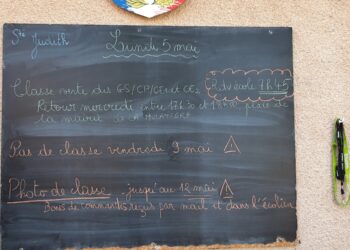 Ste Judith
Lundi 5 mai
Classe verte des GS/CP/CE1 et CE2 RDV école 7h45
Retour mercredi entre 17h30 et place de
la mairie de
Pas de classe vendredi 9 mai
Photo de classe - jusqu'au 12 mai
Bons de commande reçus par mail et dans l'écolien